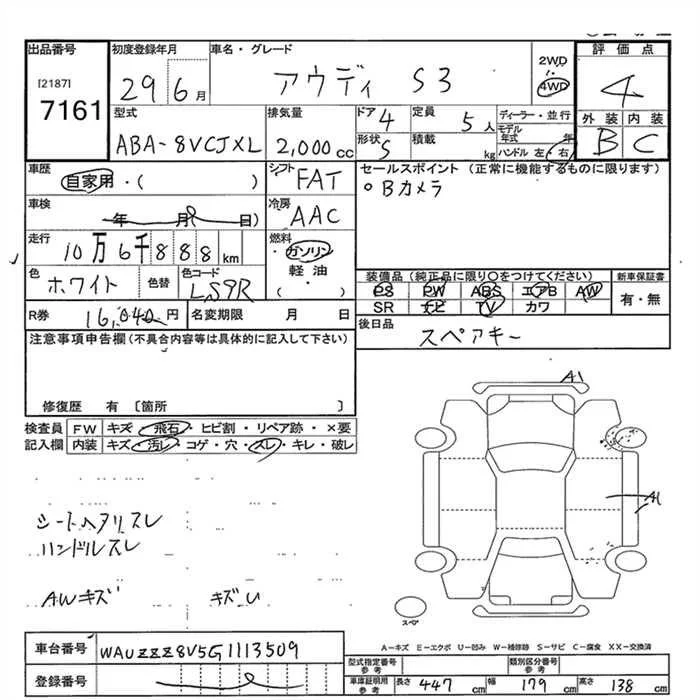 出品番号 初度登録年月 車名・グレード 2WD 評価点
[2187] 29 6月 アウディ S3 4WD 4
7161
型式 排気量 ドア 4 定員 5人 ディーラー・並行 外装 内装
ABA-8VCJXL 2,000cc 形状 S 積載 kg モデル年式 年 B C
ハンドル 左・右
車歴 自家用・( ) シフト FAT セールスポイント (正常に機能するものに限ります)
車検 年 月 日) 冷房 AAC ○Bカメラ
走行 10万6千888km 燃料 ガソリン
軽油
・( )
色 ホワイト 色替 色コード LS9R 装備品(純正品に限り○をつけてください) 新車保証書
PS PW ABS エアB AW 有・無
SR ナビ TV カワ
R券 16,040円 名変期限 月 日 後日品 スペアキー
注意事項申告欄(不具合内容等は具体的に記入して下さい)
修復歴 有 [箇所 ]
検査員 FW キズ・飛石・ヒビ割・リペア跡・×要
記入欄 内装 キズ・汚レ・コゲ・穴・スレ・キレ・破レ
A1
シートヘタリスレ A1
ハンドルスレ
AWキズ キズU
スペア
A-キズ E-エクボ U-凹み W-補修跡 S-サビ C-腐食 XX-交換済
車台番号 WAUZZZ8V5G1113509
登録番号 型式指定番号 参考 類別区分番号 参考
車庫証明用 参考 長さ 447cm 幅 179cm 高さ 138cm